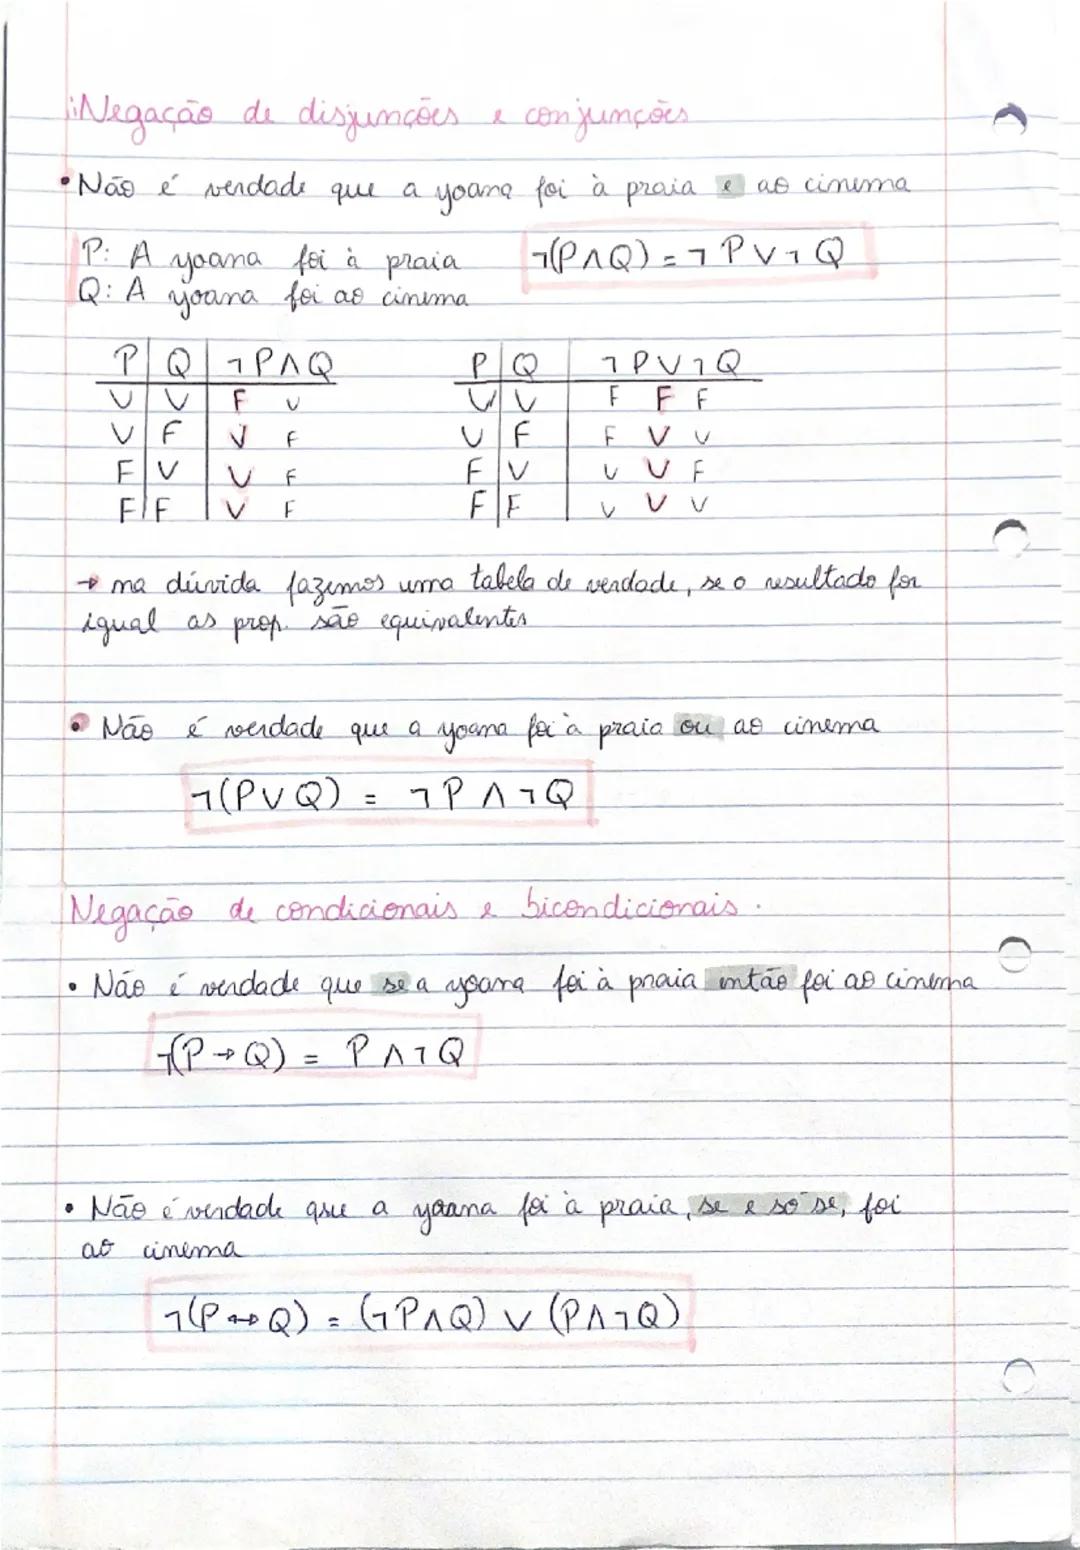 Negação de disjunções e conjunções
• Não é verdade que a yoana foi à praia e ao cinema
P: A yoana foi à praia ¬(P∧Q) = ¬P∨¬Q
Q: A yoana foi ao cinema
P Q ¬P∧Q P Q ¬P∨¬Q
V V F V V V F F F
V F V F V F F V V
F V V F F V V V F
F F V F F F V V V
→ na dúvida fazemos uma tabela de verdade, se o resultado for
igual as prop. são equivalentes
• Não é verdade que a yoana foi à praia ou ao cinema
¬(P∨Q) = ¬P∧¬Q
Negação de condicionais e bicondicionais.
• Não é verdade que se a yoana foi à praia então foi ao cinema
¬(P→Q) = P∧¬Q
• Não é verdade que a yoana foi à praia, se e só se, foi
ao cinema
¬(P↔Q) = (¬P∧Q) ∨ (P∧¬Q)